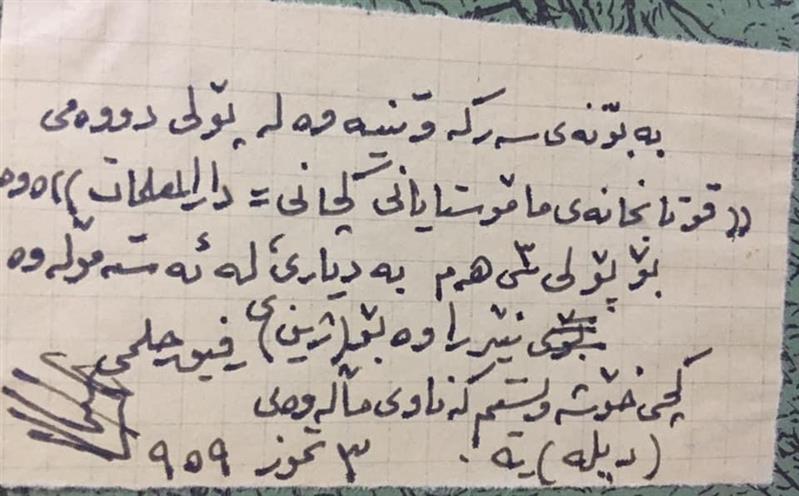 به بۆنەی سەرکەوتنیەوە لە پۆلی دووەمی
((قوتابخانەی مامۆستایانی کچانی = دار المعلمات))ەوە
بۆ پۆلی ٣ی هەم بە دیاری لە ئەستەمۆڵەوە
نێرراوە بۆ (ژرین)ی رفیق حلمی
کچی خۆشەویستم کە ناوی ماڵەوەی
(دیلە) یە. ٣ تموز ٩٥٩